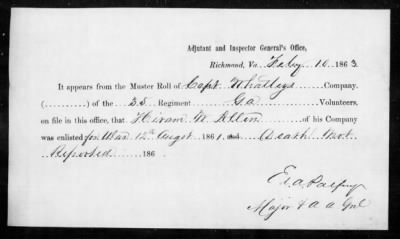 Adjutant and Inspector General's Office,
Richmond, Va. Feby 10 1863
It appears from the Muster Roll of Capt Whatleys Company.
(..........) of the 35 Regiment Ga Volunteers,
on file in this office, that Hiram M. Allen of his Company
was enlisted for War 12th Augst 1861, and Death Not
Reported 186
Major & A A Genl